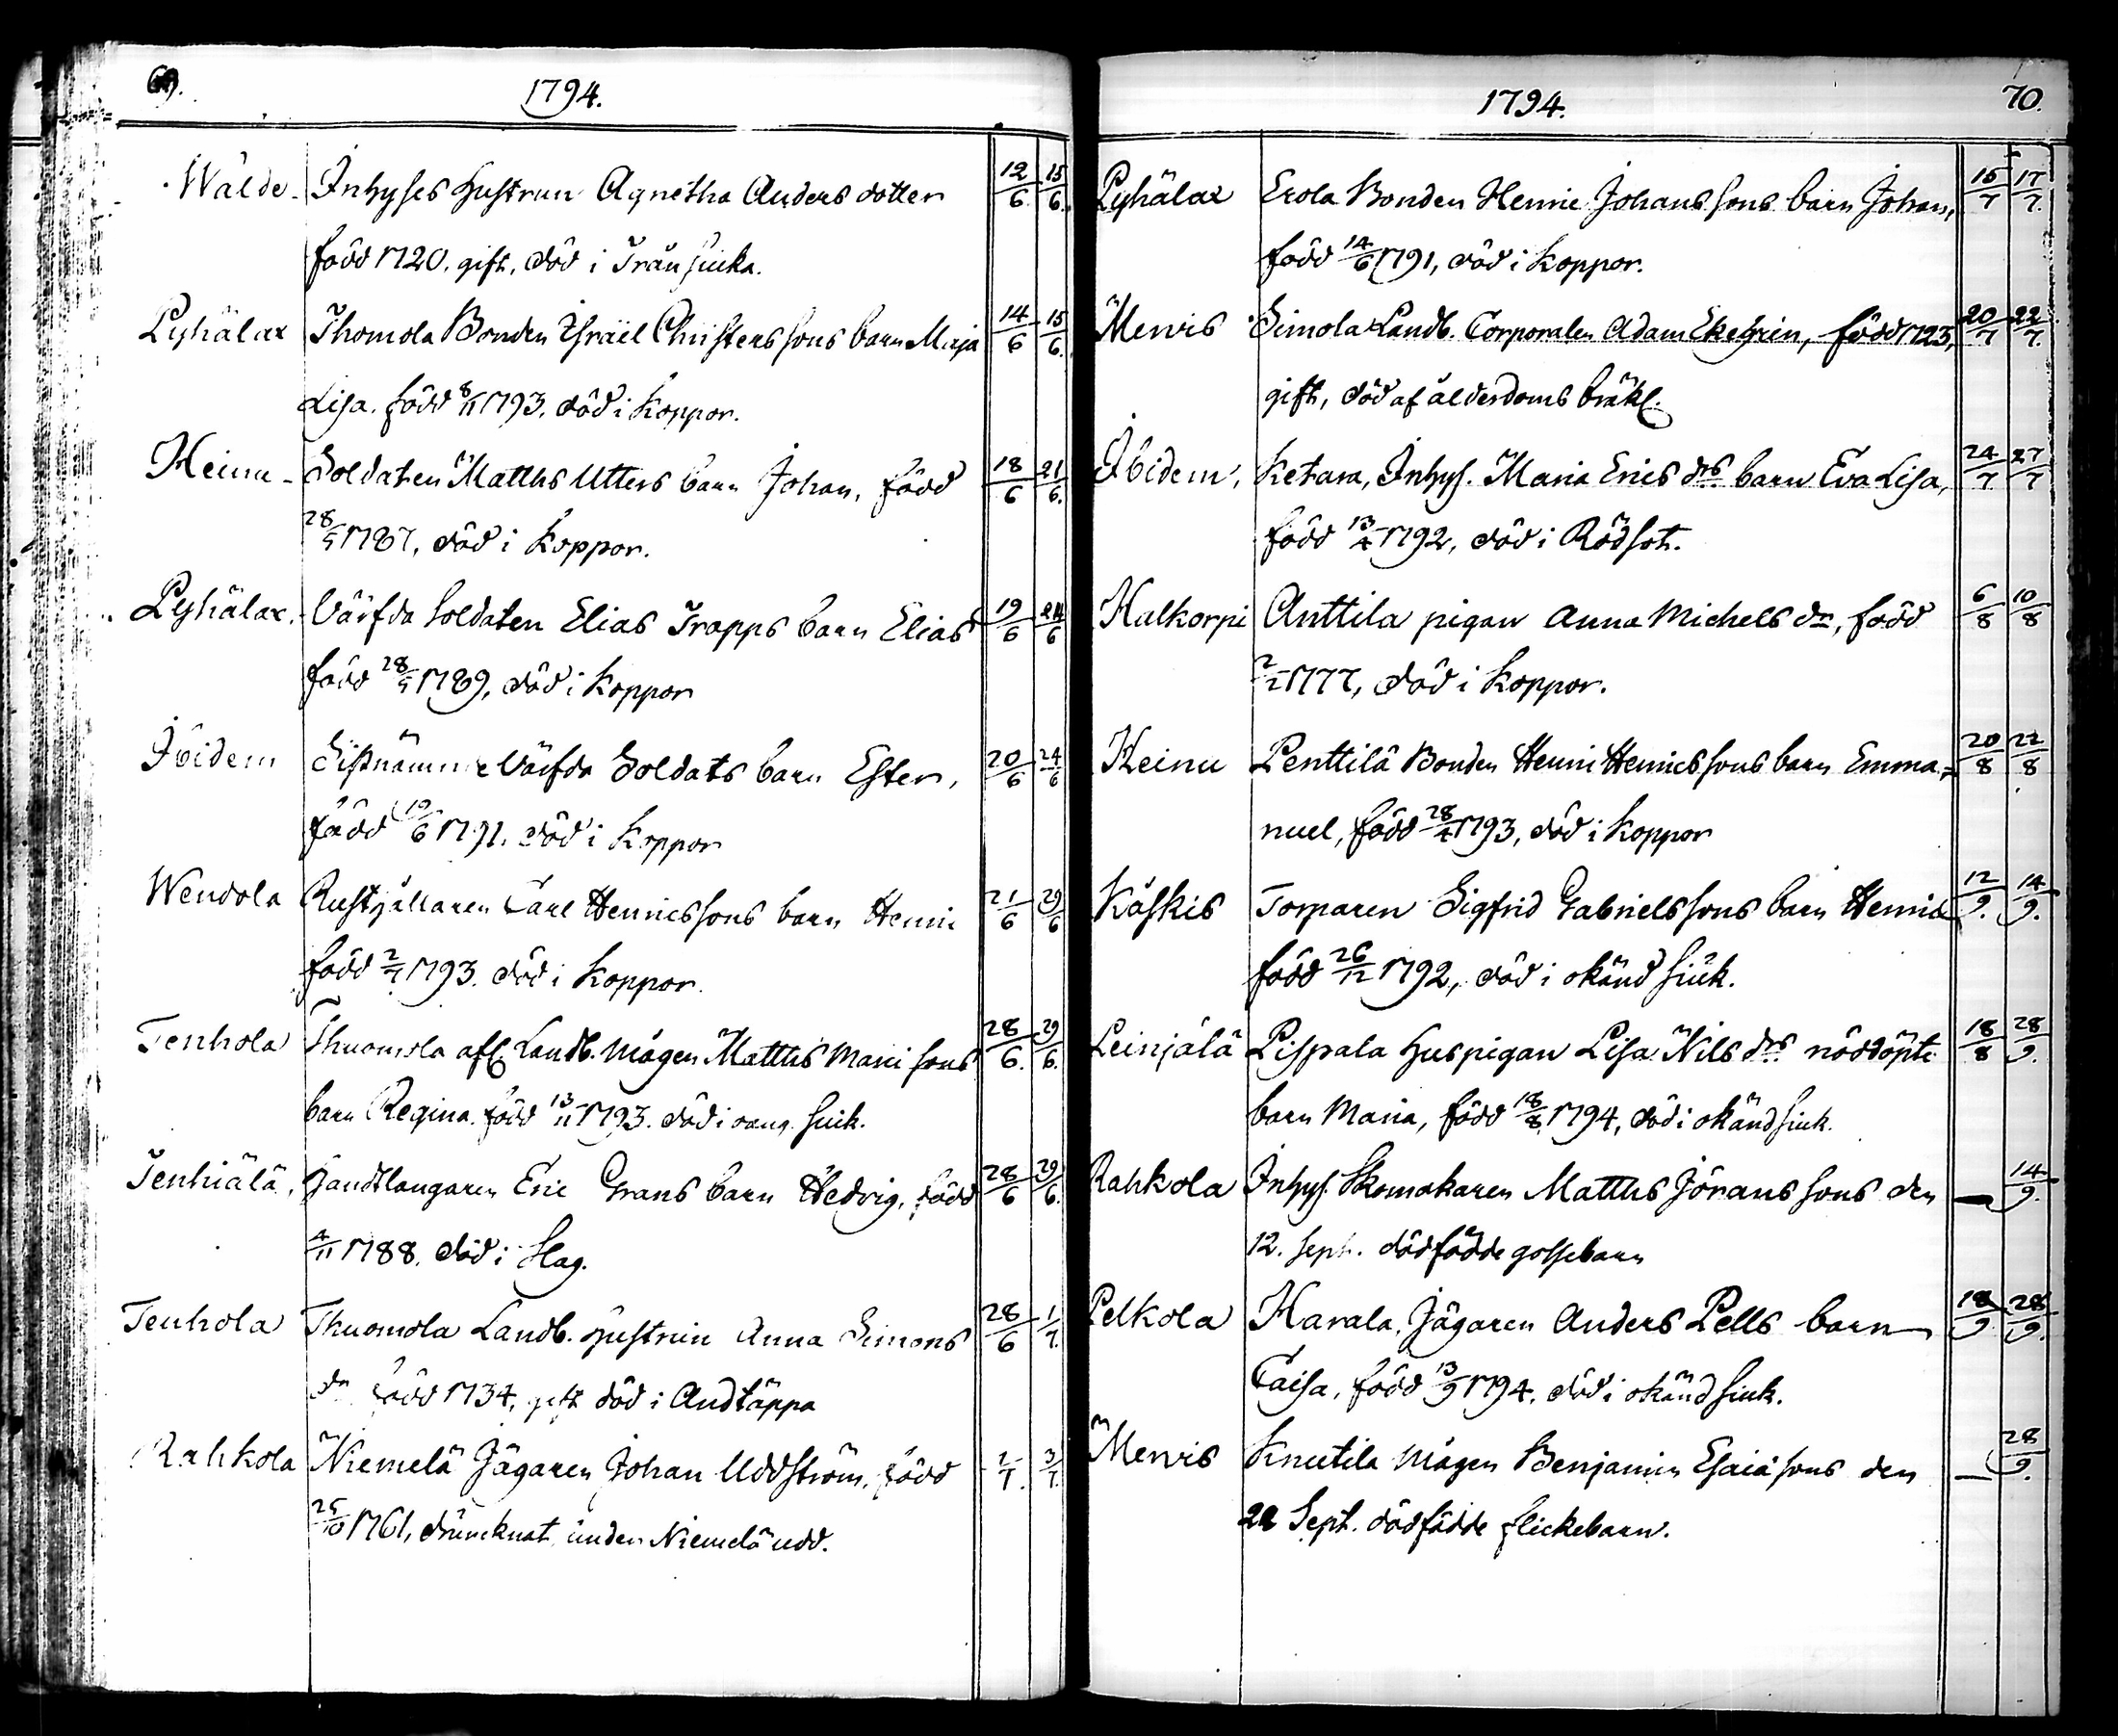 69.
1794.
Wälde. Inhyses Hustrun Agnetha Anders dotter 12/6 15/6.
född 1720. gift, död i Trånsiuka.
Pyhälax Thomola Bonden Israël Christerssons barn Maja 14/6 15/6.
Lisa. född 8/11 1793. död i Koppor.
Heinu - Soldaten Matths Utters barn Johan, född 18/6 21/6.
28/5 1787, död i Koppor.
Pyhälax. Värfda Soldaten Elias Trapps barn Elias 19/6 24/6
född 28/5 1789, död i Koppor
Ibidem Sistnämnde Värfda Soldats barn Ester, 20/6 24/6
född 19/6 1791. död i Koppor
Wendola Rusthållaren Carl Henricssons barn Henric 21/6 29/6
född 2/4 1793. död i Koppor.
Tenhola Thuomola afl. Landb. Mågen Matths Manssons 28/6. 29/6.
barn Regina. född 13/11 1793. död i siuk.
Tenhiälä, Handtlangaren Eric Grans barn Hedvig, född 28/6 29/6.
4/11 1788. död i Slag.
Tenhola Thuomola Landb. Hustrun Anna Simons 28/6 1/7.
dr född 1734, gift död i Andtäppa
Rahkola Niemelä Jägaren Johan Uddström, född 2/7. 3/7.
25/10 1761, druncknat under Niemelä udd.
1794.
70.
Pyhälax Erola Bonden Henric Johanssons barn Johan, 15/7 17/7.
född 14/6 1791, död i Koppor.
Mervis Simola Landb. Corporalen Adam Ekegrein, född 1723, 20/7 22/7.
gift, död af ålderdoms bräkl.
Ibidem, Ketara, Inhys. Maria Erics drs barn Eva Lisa, 24/7 27/7
född 13/4 1792, död i Rödsot.
Halkorpi Anttila pigan Anna Michels dr, född 6/8 10/8
2/2 1777, död i Koppor.
Heinu Penttilä Bonden Henric Henricssons barn Emma= 20/8 22/8
nuel, född 28/4 1793, död i Koppor
Käskis Torparen Sigfrid Gabrielssons barn Henric 12/9. 14/9.
född 26/12 1792, död i okänd siuk.
Leinjälä Pispala Huspigan Lisa Nils drs nöddöpte 18/8 28/9.
barn Maria, född 18/8 1794, död i okänd siuk.
Rahkola Inhys. Skomakaren Matths Jöranssons den — 14/9.
12. Sept. dödfödde gossebarn
Pelkola Harala, Jägaren Anders Pells barn 18/9. 28/9.
Caisa, född 13/9 1794. död i okänd siuk.
Mervis Knutila Mågen Benjamin Esaiæsons den — 28/9.
22 Sept. dödfödde flickebarn.